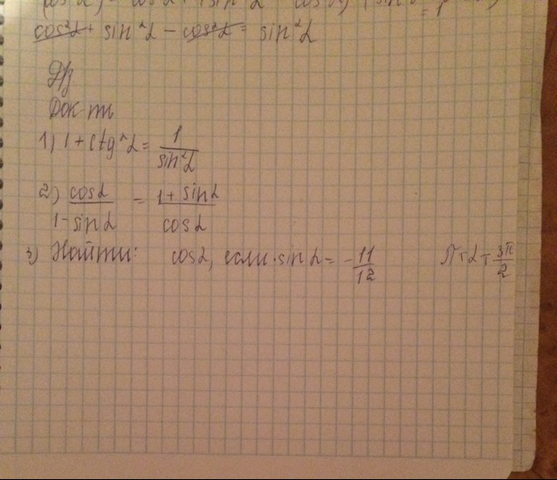 cos²α + sin²α - cos²α = sin²α
Д/з
Док-ть
1) 1 + ctg²α = 1/sin²α
2) cosα/1-sinα = 1+sinα/cosα
3) Найти: cosα, если sinα = -11/12 π<α<3π/2